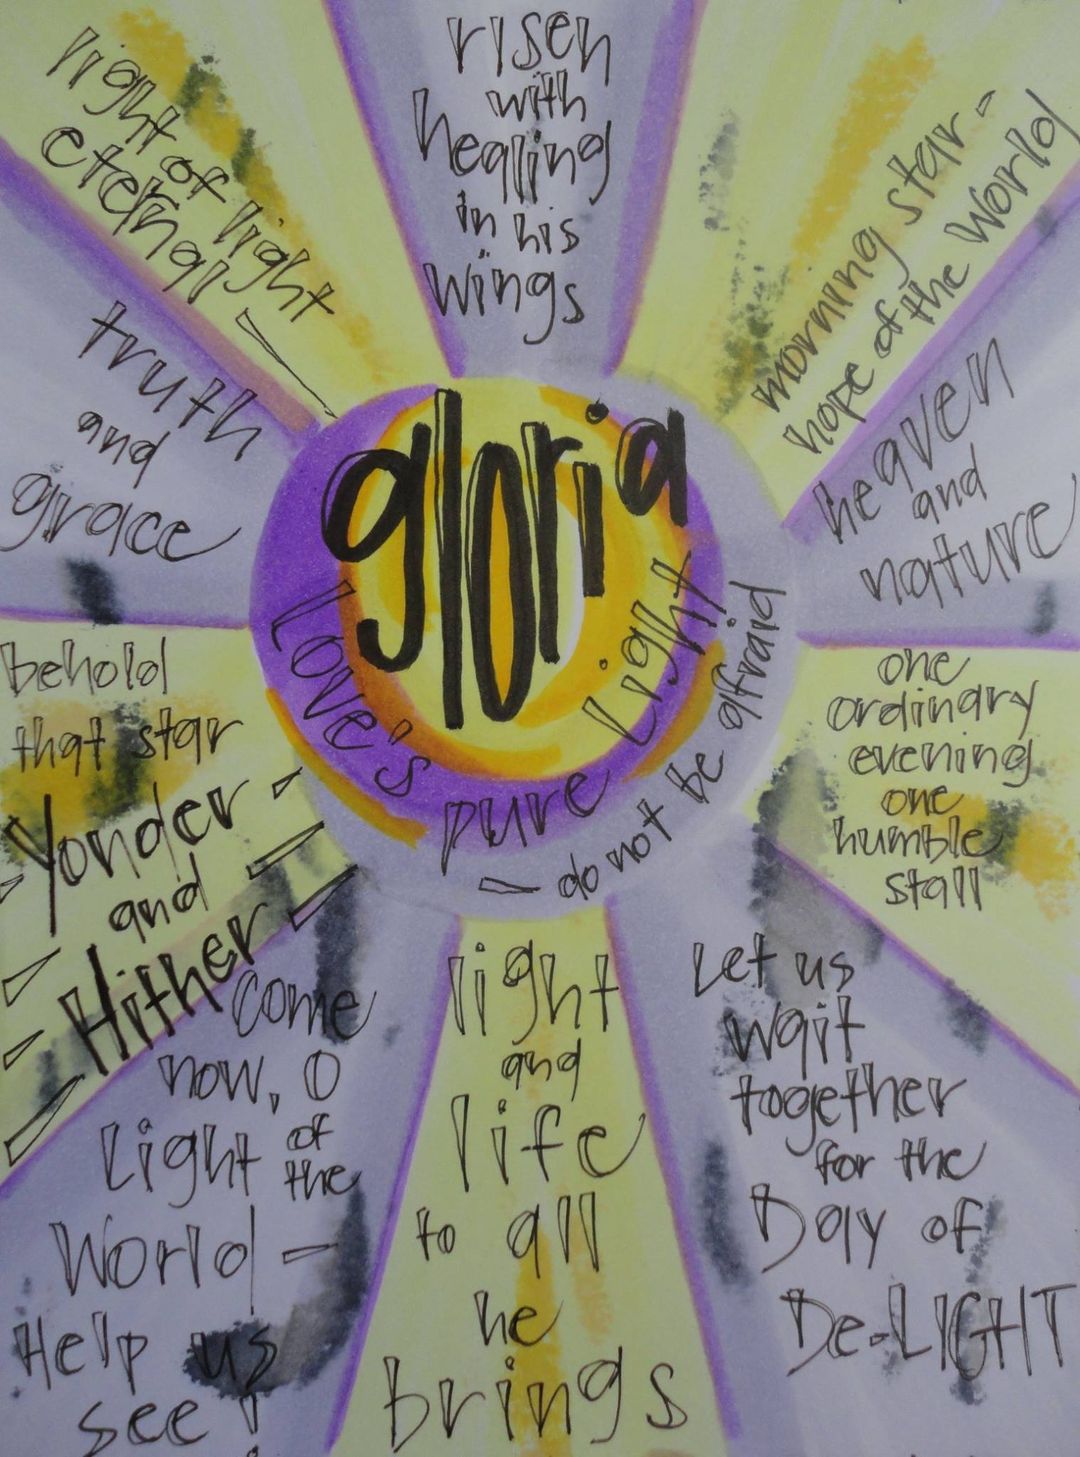 risen
with
healing
in his
wings
light
of light
eternal —
morning star -
hope of the world
truth
and
grace
heaven
and
nature
gloria
Love's pure Light
— do not be afraid
behold
that star
Yonder -
- and -
- Hither -
one
ordinary
evening
one
humble
stall
come
now, O
Light of
the
World -
Help us
see!
light
and
life
to all
he
brings
Let us
wait
together
for the
Day of
De-LIGHT